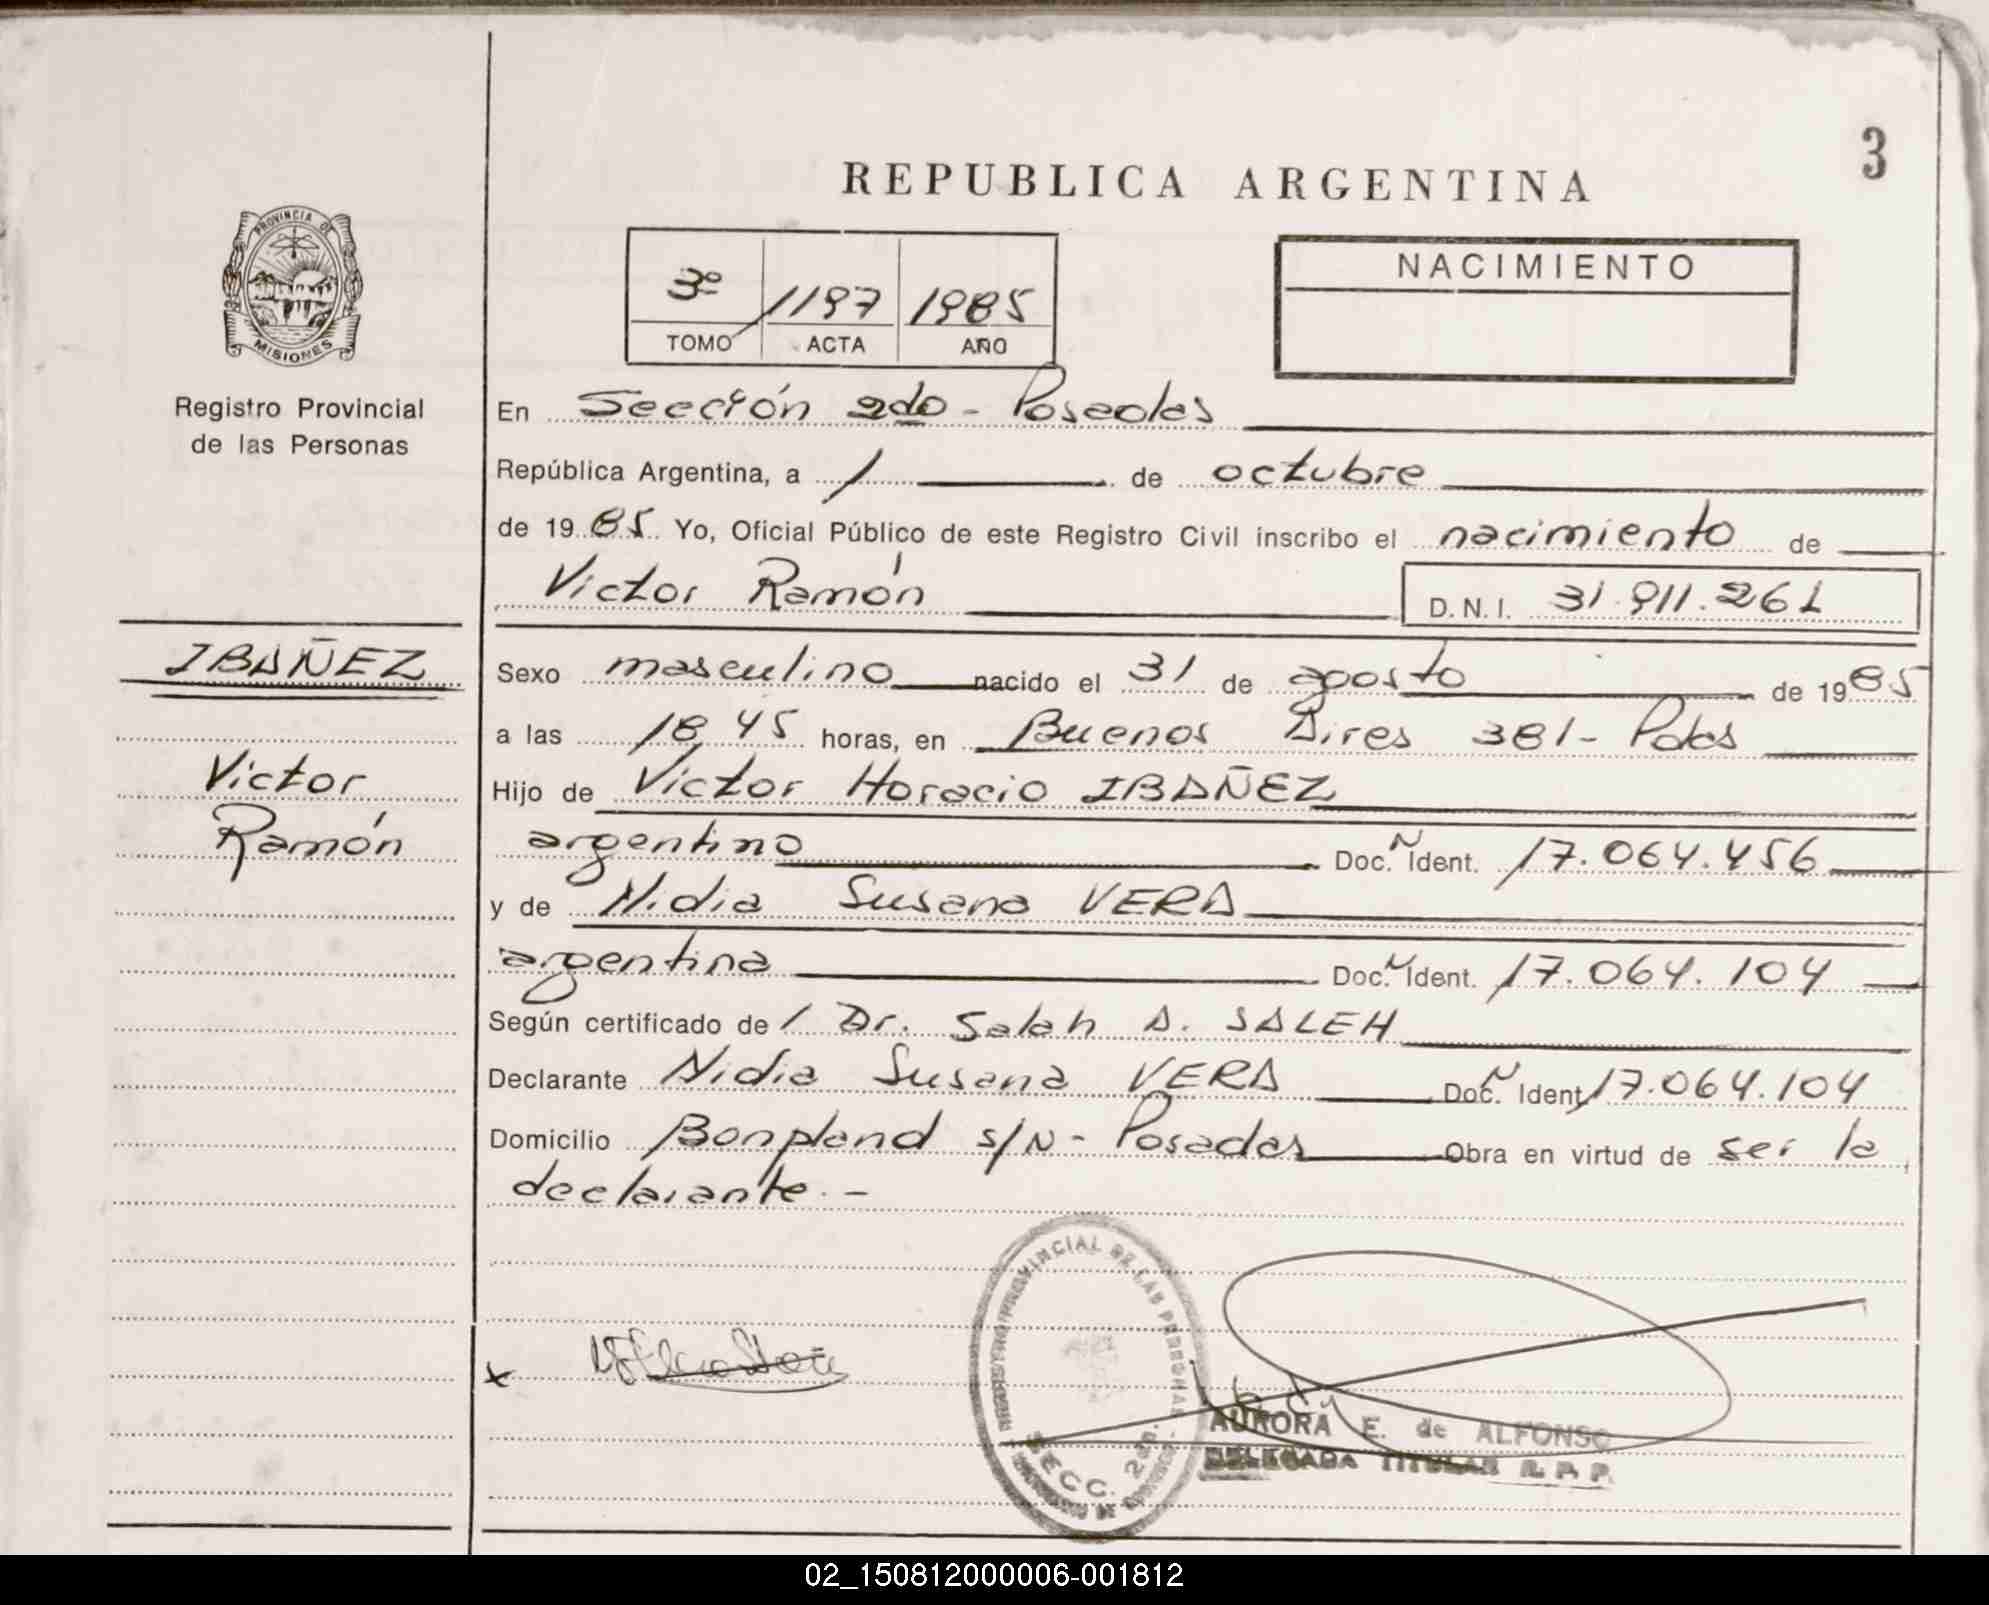 3
REPUBLICA ARGENTINA
PROVINCIA DE
MISIONES
Registro Provincial
de las Personas
3º 1197 1985
TOMO ACTA AÑO
NACIMIENTO
En Sección 2do - Posadas
República Argentina, a 1 de octubre
de 1985 Yo, Oficial Público de este Registro Civil inscribo el nacimiento de
Victor Ramón D.N.I. 31.911.261
IBAÑEZ
Victor
Ramón
Sexo masculino nacido el 31 de agosto de 1985
a las 18,45 horas, en Buenos Aires 381 - Pdas
Hijo de Victor Horacio IBAÑEZ
argentino Doc. N Ident. 17.064.456
y de Nidia Susana VERA
argentina Doc. N Ident. 17.064.104
Según certificado de / Dr. Saleh A. SALEH
Declarante Nidia Susana VERA Doc. N Ident. 17.064.104
Domicilio Bonpland s/N - Posadas Obra en virtud de ser la
declarante. -
x
REGISTRO PROVINCIAL DE LAS PERSONAS
SECC. 2da.
AURORA E. de ALFONSO
DELEGADA TITULAR R. P. P.
02_150812000006-001812